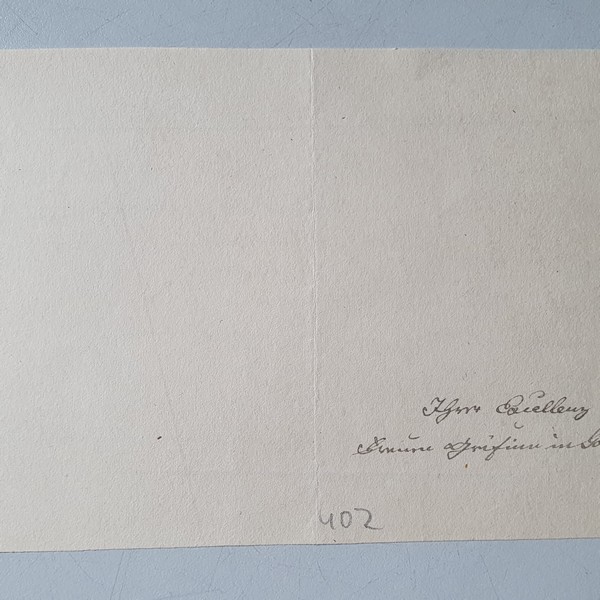 Ihrer Excellenz
Frauen Gräfinn in
402